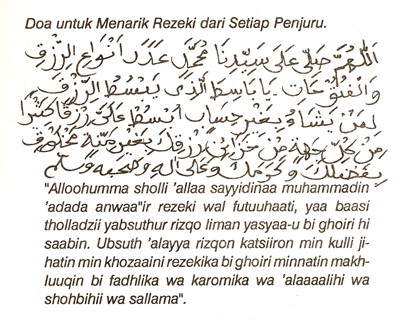 Doa untuk Menarik Rezeki dari Setiap Penjuru.
اَللّٰهُمَّ صَلِّى عَلَى سَيِّدِنَا مُحَمَّدٍ عَدَدَ اَنْوَاعِ الرِّزْقِ
وَالْفُتُوْحَاتِ يَا بَاسِطَ الَّذِى يَبْسُطُ الرِّزْقَ
لِمَنْ يَشَاءُ بِغَيْرِ حِسَابٍ اُبْسُطْ عَلَىَّ رِزْقًا كَثِيْرًا
مِنْ كُلِّ جِهَةٍ مِنْ خَزَائِنِ رِزْقِكَ بِغَيْرِ مِنَّةِ مَخْلُوْقٍ
بِفَضْلِكَ وَكَرَمِكَ وَعَلَى اٰلِهِ وَصَحْبِهِ وَسَلَّمَ
"Alloohumma sholli 'allaa sayyidinaa muhammadin
'adada anwaa"ir rezeki wal futuuhaati, yaa baasi
tholladzii yabsuthur rizqo liman yasyaa-u bi ghoiri hi
saabin. Ubsuth 'alayya rizqon katsiiron min kulli ji-
hatin min khozaaini rezekika bi ghoiri minnatin makh-
luuqin bi fadhlika wa karomika wa 'alaaaalihi wa
shohbihii wa sallama".